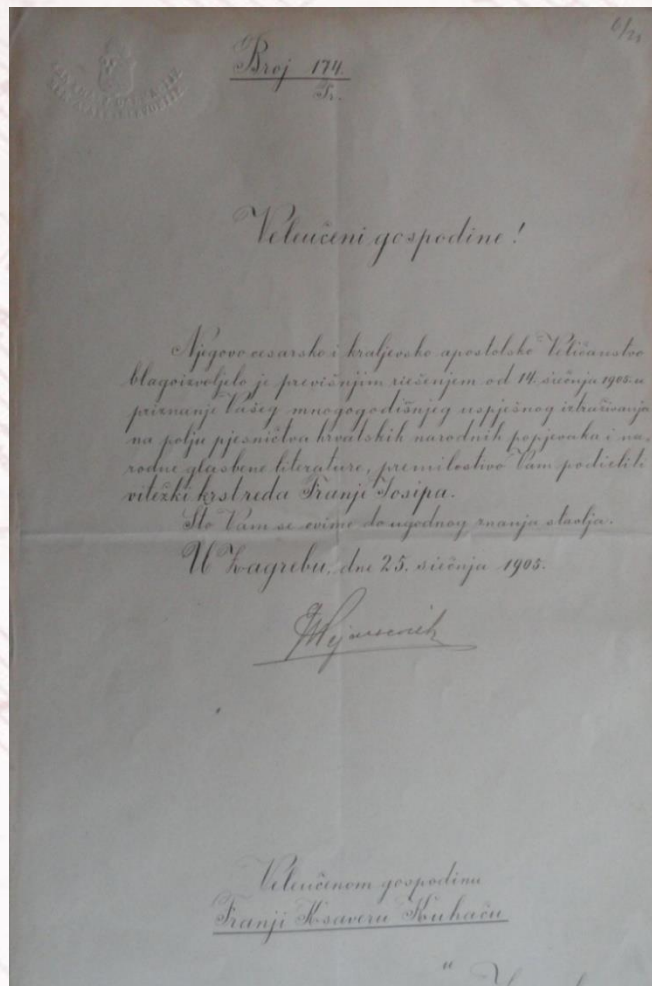 6/21
Broj 174.
Pr.
Veleučeni gospodine!
Njegovo cesarsko i kraljevsko apostolsko Veličanstvo
blagoizvoljelo je previšnjim riešenjem od 14. siečnja 1905. u
priznanje Vašeg mnogogodišnjeg uspješnog iztraživanja
na polju pjesničtva hrvatskih narodnih popjevaka i na-
rodne glasbene literature, premilostivo Vam podieliti
vitežki krst reda Franje Josipa.
Što Vam se ovime do ugodnog znanja stavlja.
U Zagrebu, dne 25. siečnja 1905.
Veleučenom gospodinu
Franji Ksaveru Kuhaču
"